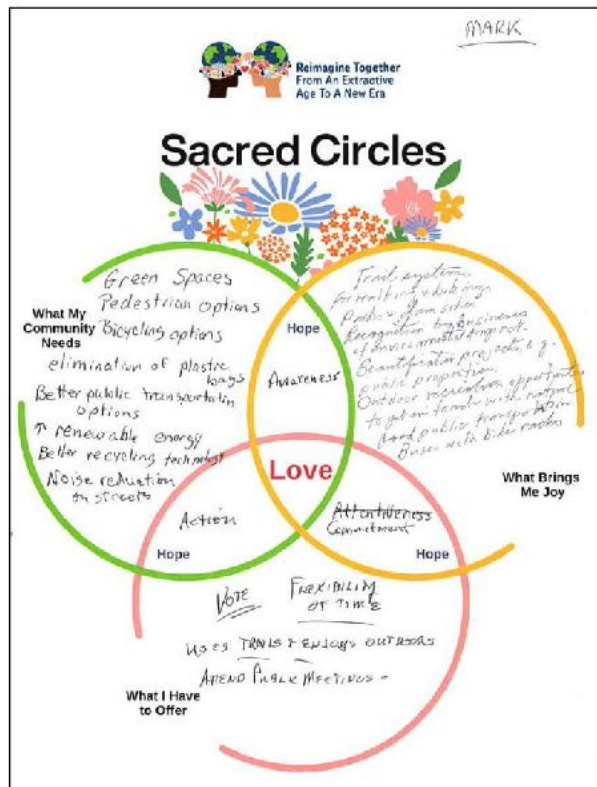 MARK
Reimagine Together
From An Extractive
Age To A New Era
Sacred Circles
What My
Community
Needs
Green Spaces
Pedestrian options
Bicycling options
elimination of plastic
bags
Better public transportation
options
↑ renewable energy
Better recycling technology
Noise reduction
on streets
Hope
Awareness
Trail systems
for walking & biking
Parks & Green sites
Recognition by businesses
of environmental impact.
Beautification projects, e.g.
public properties.
Outdoor recreation opportunities
to get in touch with nature
Good public transportation
Buses with bike racks
What Brings
Me Joy
Love
Action
Hope
Attentiveness
Commitment
Hope
VOTE
FLEXIBILITY
OF TIME
USES TRAILS & ENJOYS OUTDOORS
ATTEND PUBLIC MEETINGS
What I Have
to Offer